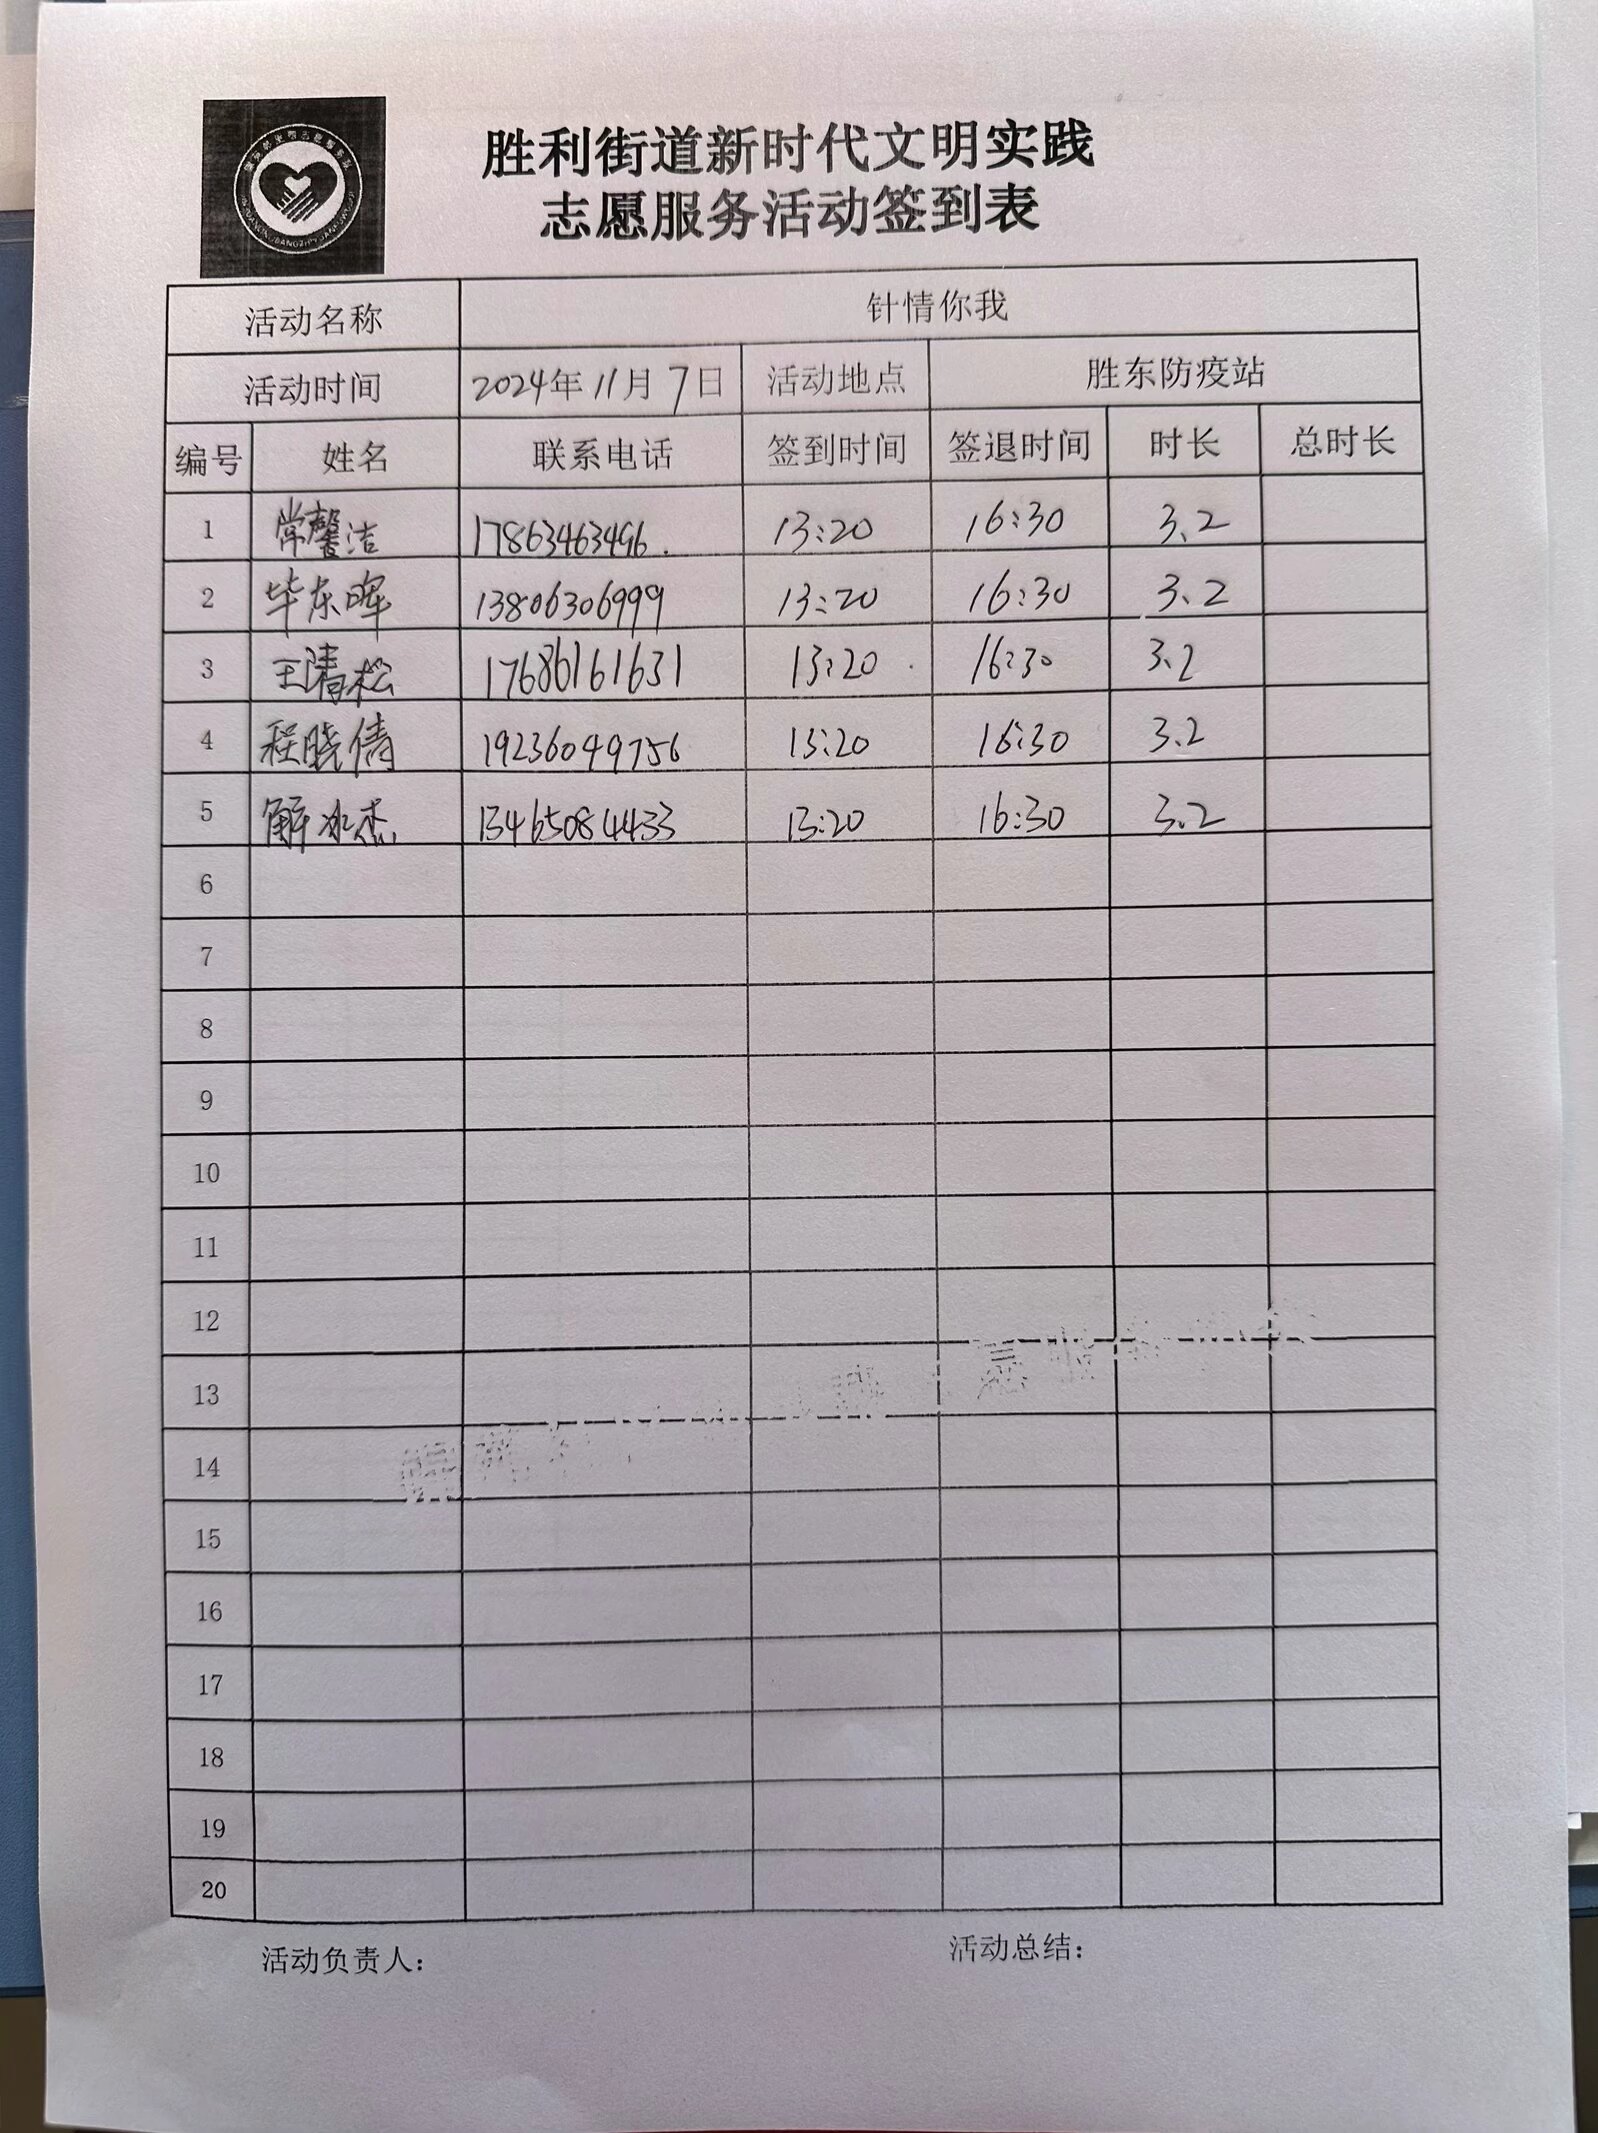 胜利街道新时代文明实践
志愿服务活动签到表
活动名称 针情你我
活动时间 2024年11月7日 活动地点 胜东防疫站
编号 姓名 联系电话 签到时间 签退时间 时长 总时长
1 常馨洁 17863463496. 13:20 16:30 3.2
2 毕东晖 13806306999 13:20 16:30 3.2
3 王清松 17686161631 13:20 16:30 3.2
4 程晓倩 19236049756 13:20 16:30 3.2
5 解冰杰 13465084433 13:20 16:30 3.2
6
7
8
9
10
11
12
13
14
15
16
17
18
19
20
活动负责人： 活动总结：